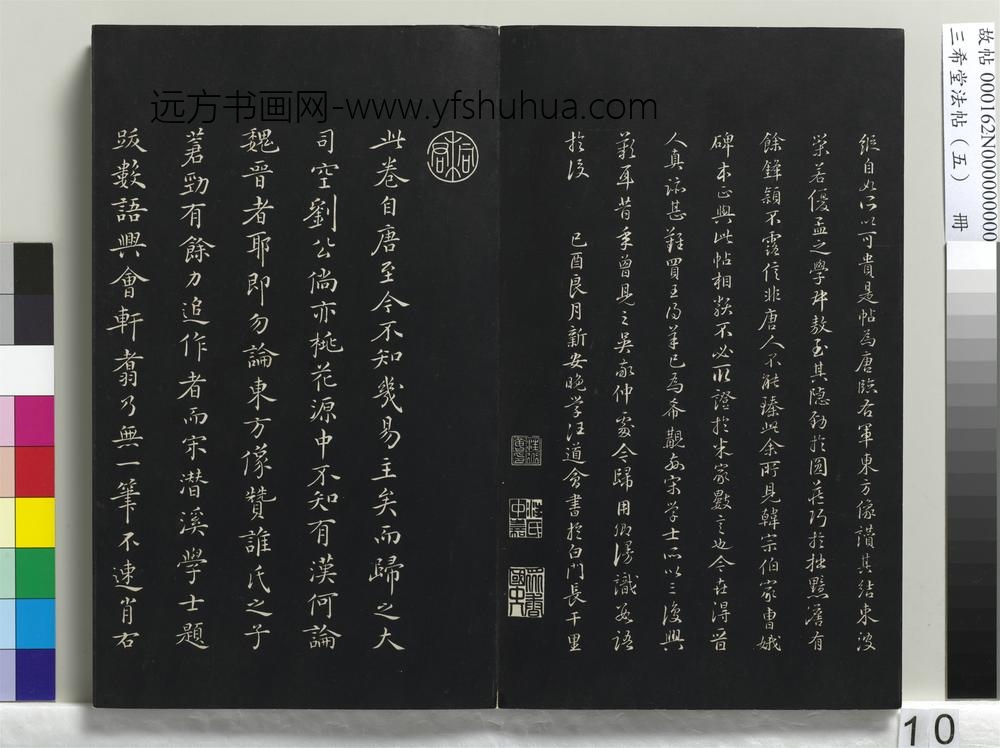 縱自如所以可貴是帖為唐臨右軍東方像讚其結束波
策若優孟之學叔敖至其隱勁於圓藏巧於拙黯澹有
餘鋒穎不露信非唐人不能臻此余所見韓宗伯家曹娥
碑本正與此帖相類不必取證於米家數言也今世得晉
人真跡甚難買王得羊已為希覯每宋学士所以三復興
歎耳昔年曾見之吳家仲處今歸用卿漫識數語
於後
己酉良月新安晚学汪道會書於白門長干里
此卷自唐至今不知幾易主矣而歸之大
司空劉公倘亦桃花源中不知有漢何論
魏晉者耶即勿論東方像贊誰氏之子
蒼勁有餘力追作者而宋潛溪學士題
跋數語興會軒翥乃無一筆不速肖右
故帖 000162N000000000
三希堂法帖（五） 冊
远方书画网-www.yfshuhua.com
10